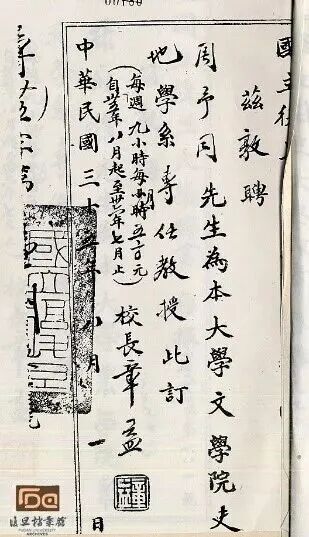 國立
茲敦聘
周予同先生為本大學文學院史
地學系專任教授此訂
(每週九小時每小時五百元
自卅五年八月起至卅六年七月止)
校長章益
中華民國三十五年八月一日
復旦檔案館
FUDAN UNIVERSITY ARCHIVES